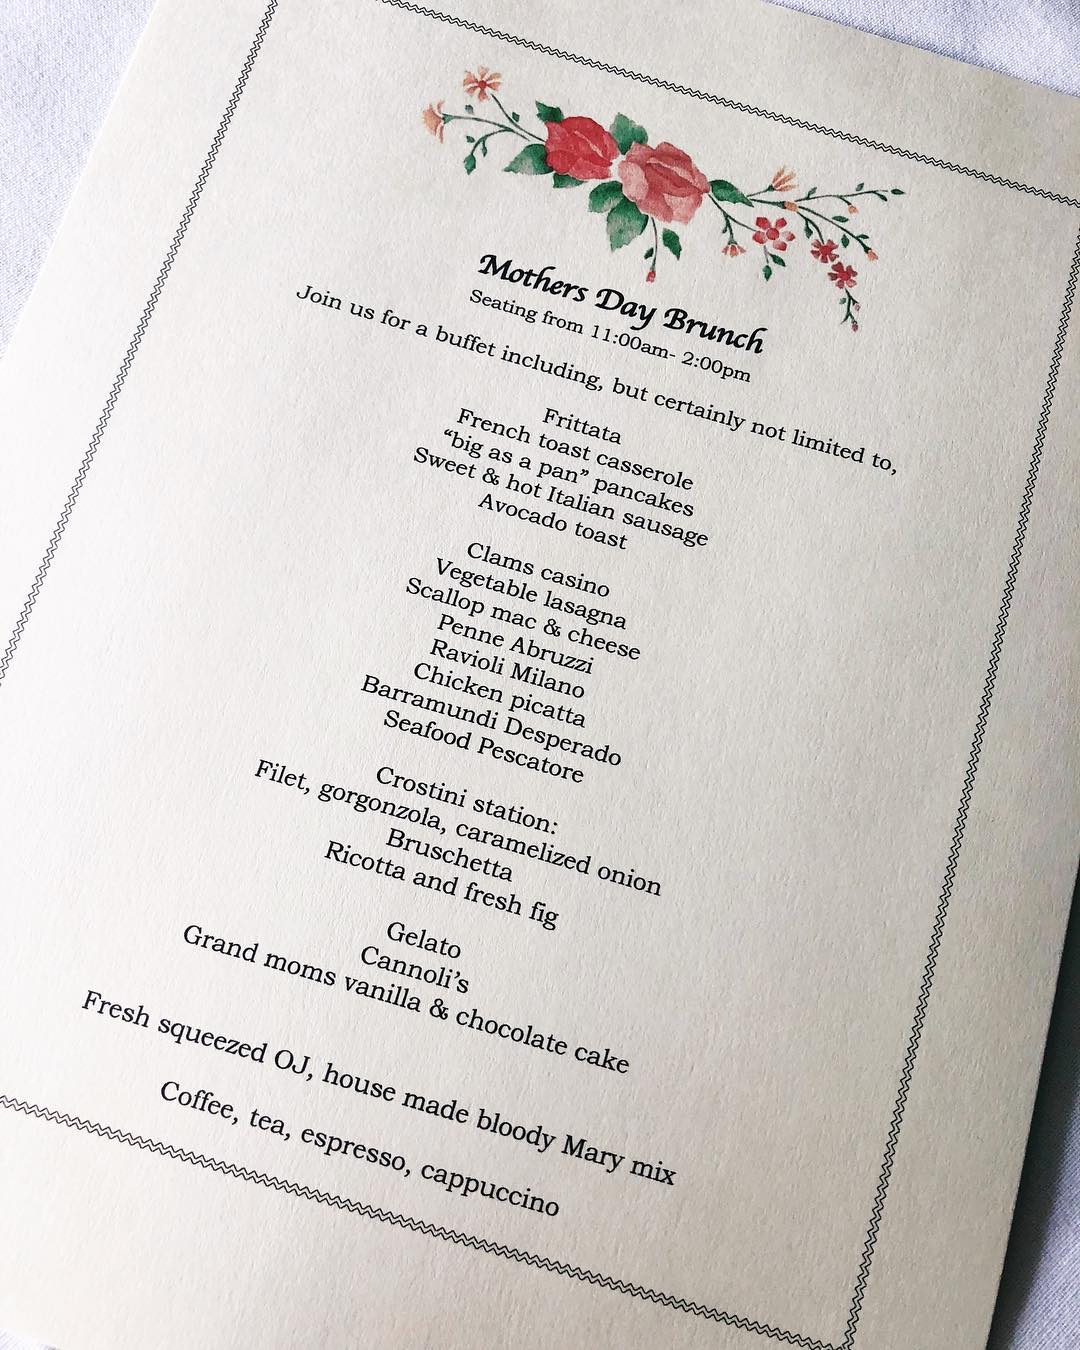 Mothers Day Brunch
Seating from 11:00am- 2:00pm
Join us for a buffet including, but certainly not limited to,
Frittata
French toast casserole
“big as a pan” pancakes
Sweet & hot Italian sausage
Avocado toast
Clams casino
Vegetable lasagna
Scallop mac & cheese
Penne Abruzzi
Ravioli Milano
Chicken picatta
Barramundi Desperado
Seafood Pescatore
Crostini station:
Filet, gorgonzola, caramelized onion
Bruschetta
Ricotta and fresh fig
Gelato
Cannoli’s
Grand moms vanilla & chocolate cake
Fresh squeezed OJ, house made bloody Mary mix
Coffee, tea, espresso, cappuccino